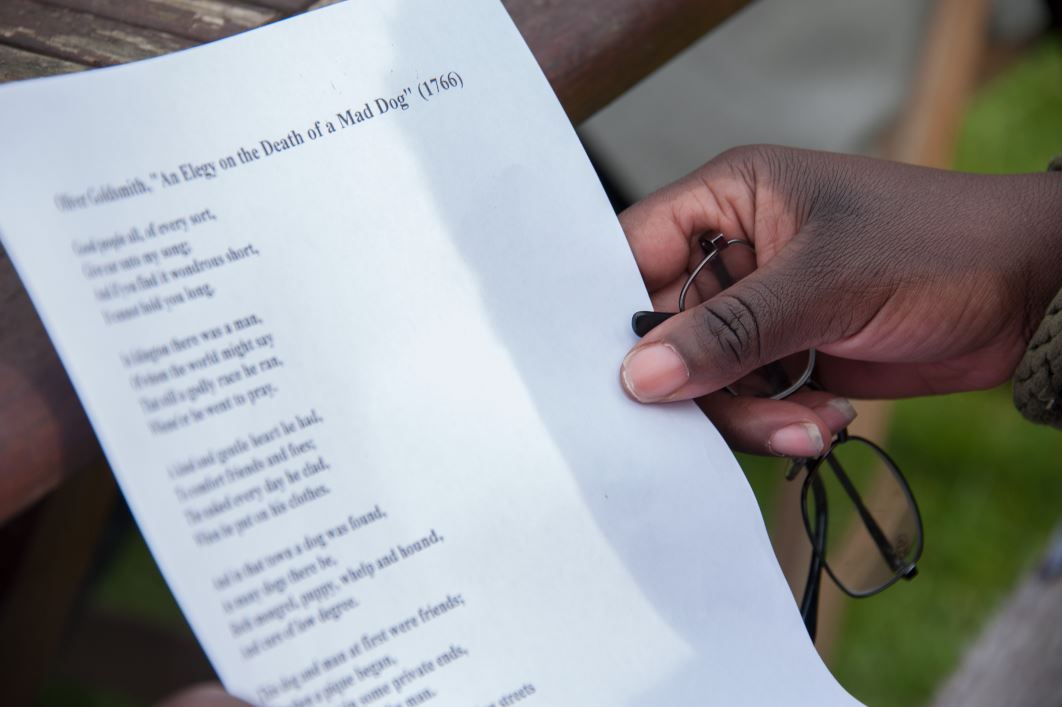 Oliver Goldsmith, "An Elegy on the Death of a Mad Dog" (1766)
Good people all, of every sort,
Give ear unto my song;
And if you find it wondrous short,
It cannot hold you long.
In Islington there was a man,
Of whom the world might say
That still a godly race he ran,
Whene'er he went to pray.
A kind and gentle heart he had,
To comfort friends and foes;
The naked every day he clad,
When he put on his clothes.
And in that town a dog was found,
As many dogs there be,
Both mongrel, puppy, whelp and hound,
And curs of low degree.
This dog and man at first were friends;
a pique began,
some private ends,
man.
streets